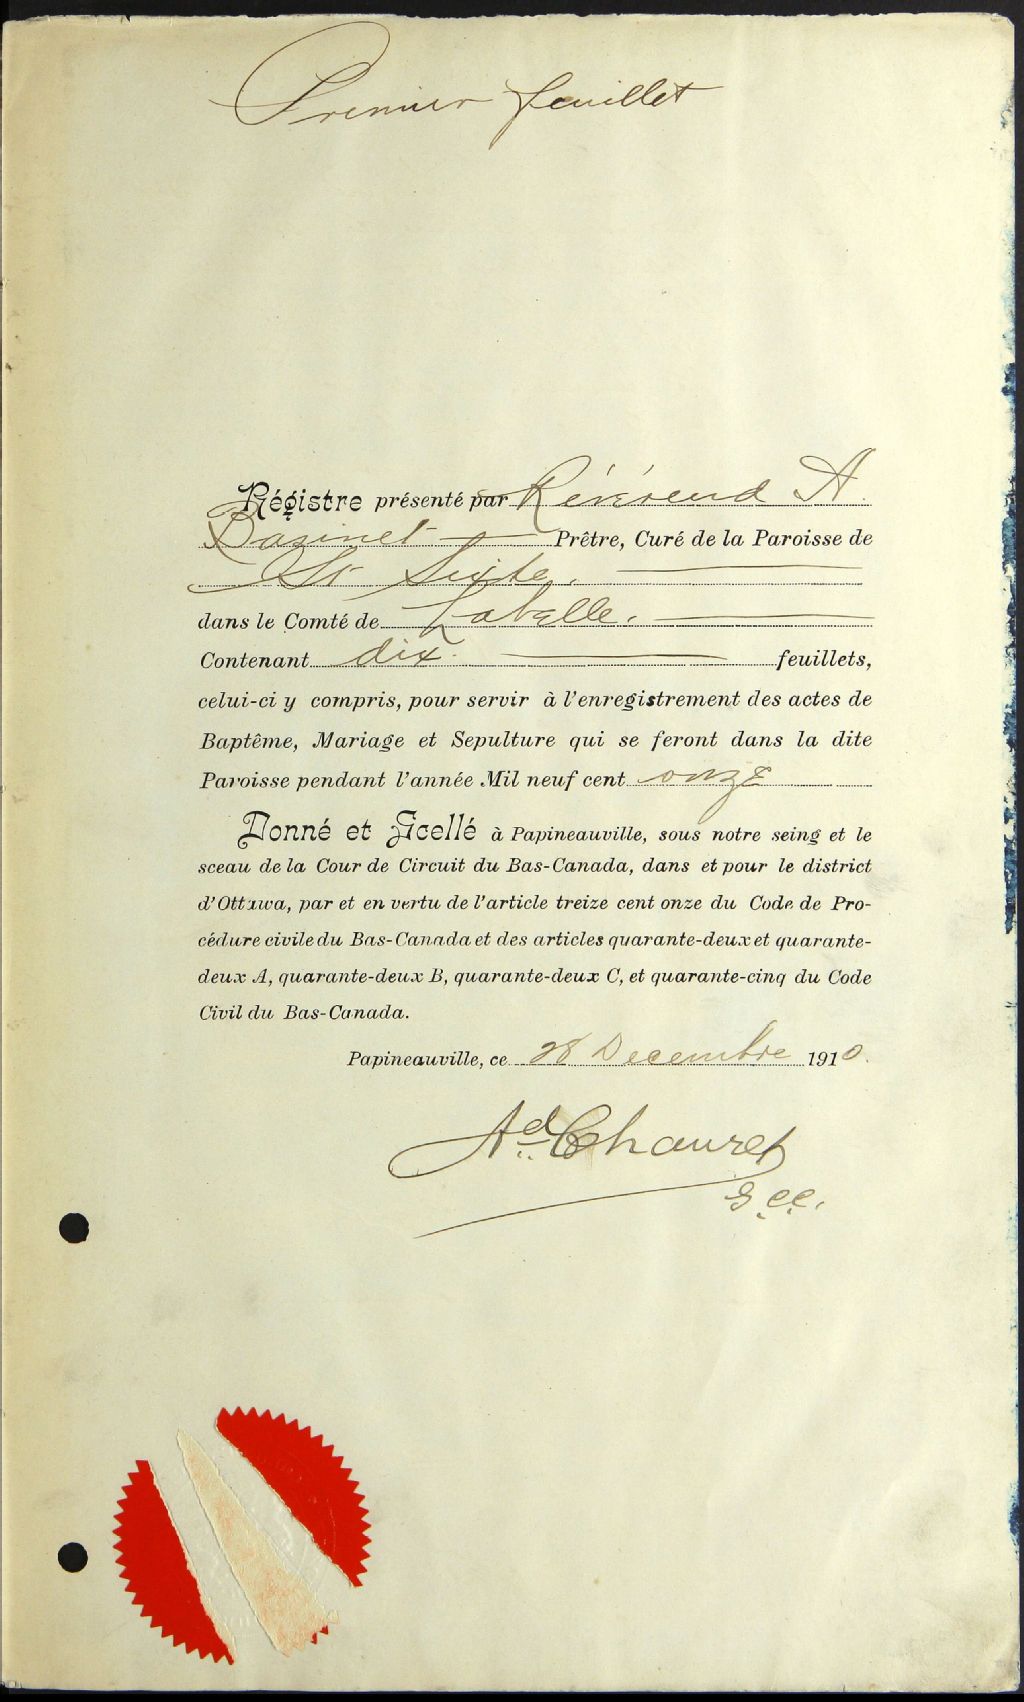 Premier feuillet
Régistre présenté par Révérend A.
Bazinet Prêtre, Curé de la Paroisse de
St Sixte.
dans le Comté de Labelle.
Contenant dix feuillets,
celui-ci y compris, pour servir à l'enregistrement des actes de
Baptême, Mariage et Sepulture qui se feront dans la dite
Paroisse pendant l'année Mil neuf cent onze
Donné et Scellé à Papineauville, sous notre seing et le
sceau de la Cour de Circuit du Bas-Canada, dans et pour le district
d'Ottawa, par et en vertu de l'article treize cent onze du Code de Pro-
cédure civile du Bas-Canada et des articles quarante-deux et quarante-
deux A, quarante-deux B, quarante-deux C, et quarante-cinq du Code
Civil du Bas-Canada.
Papineauville, ce 28 Decembre 1910.
Ad. Chauret
g.c.c.